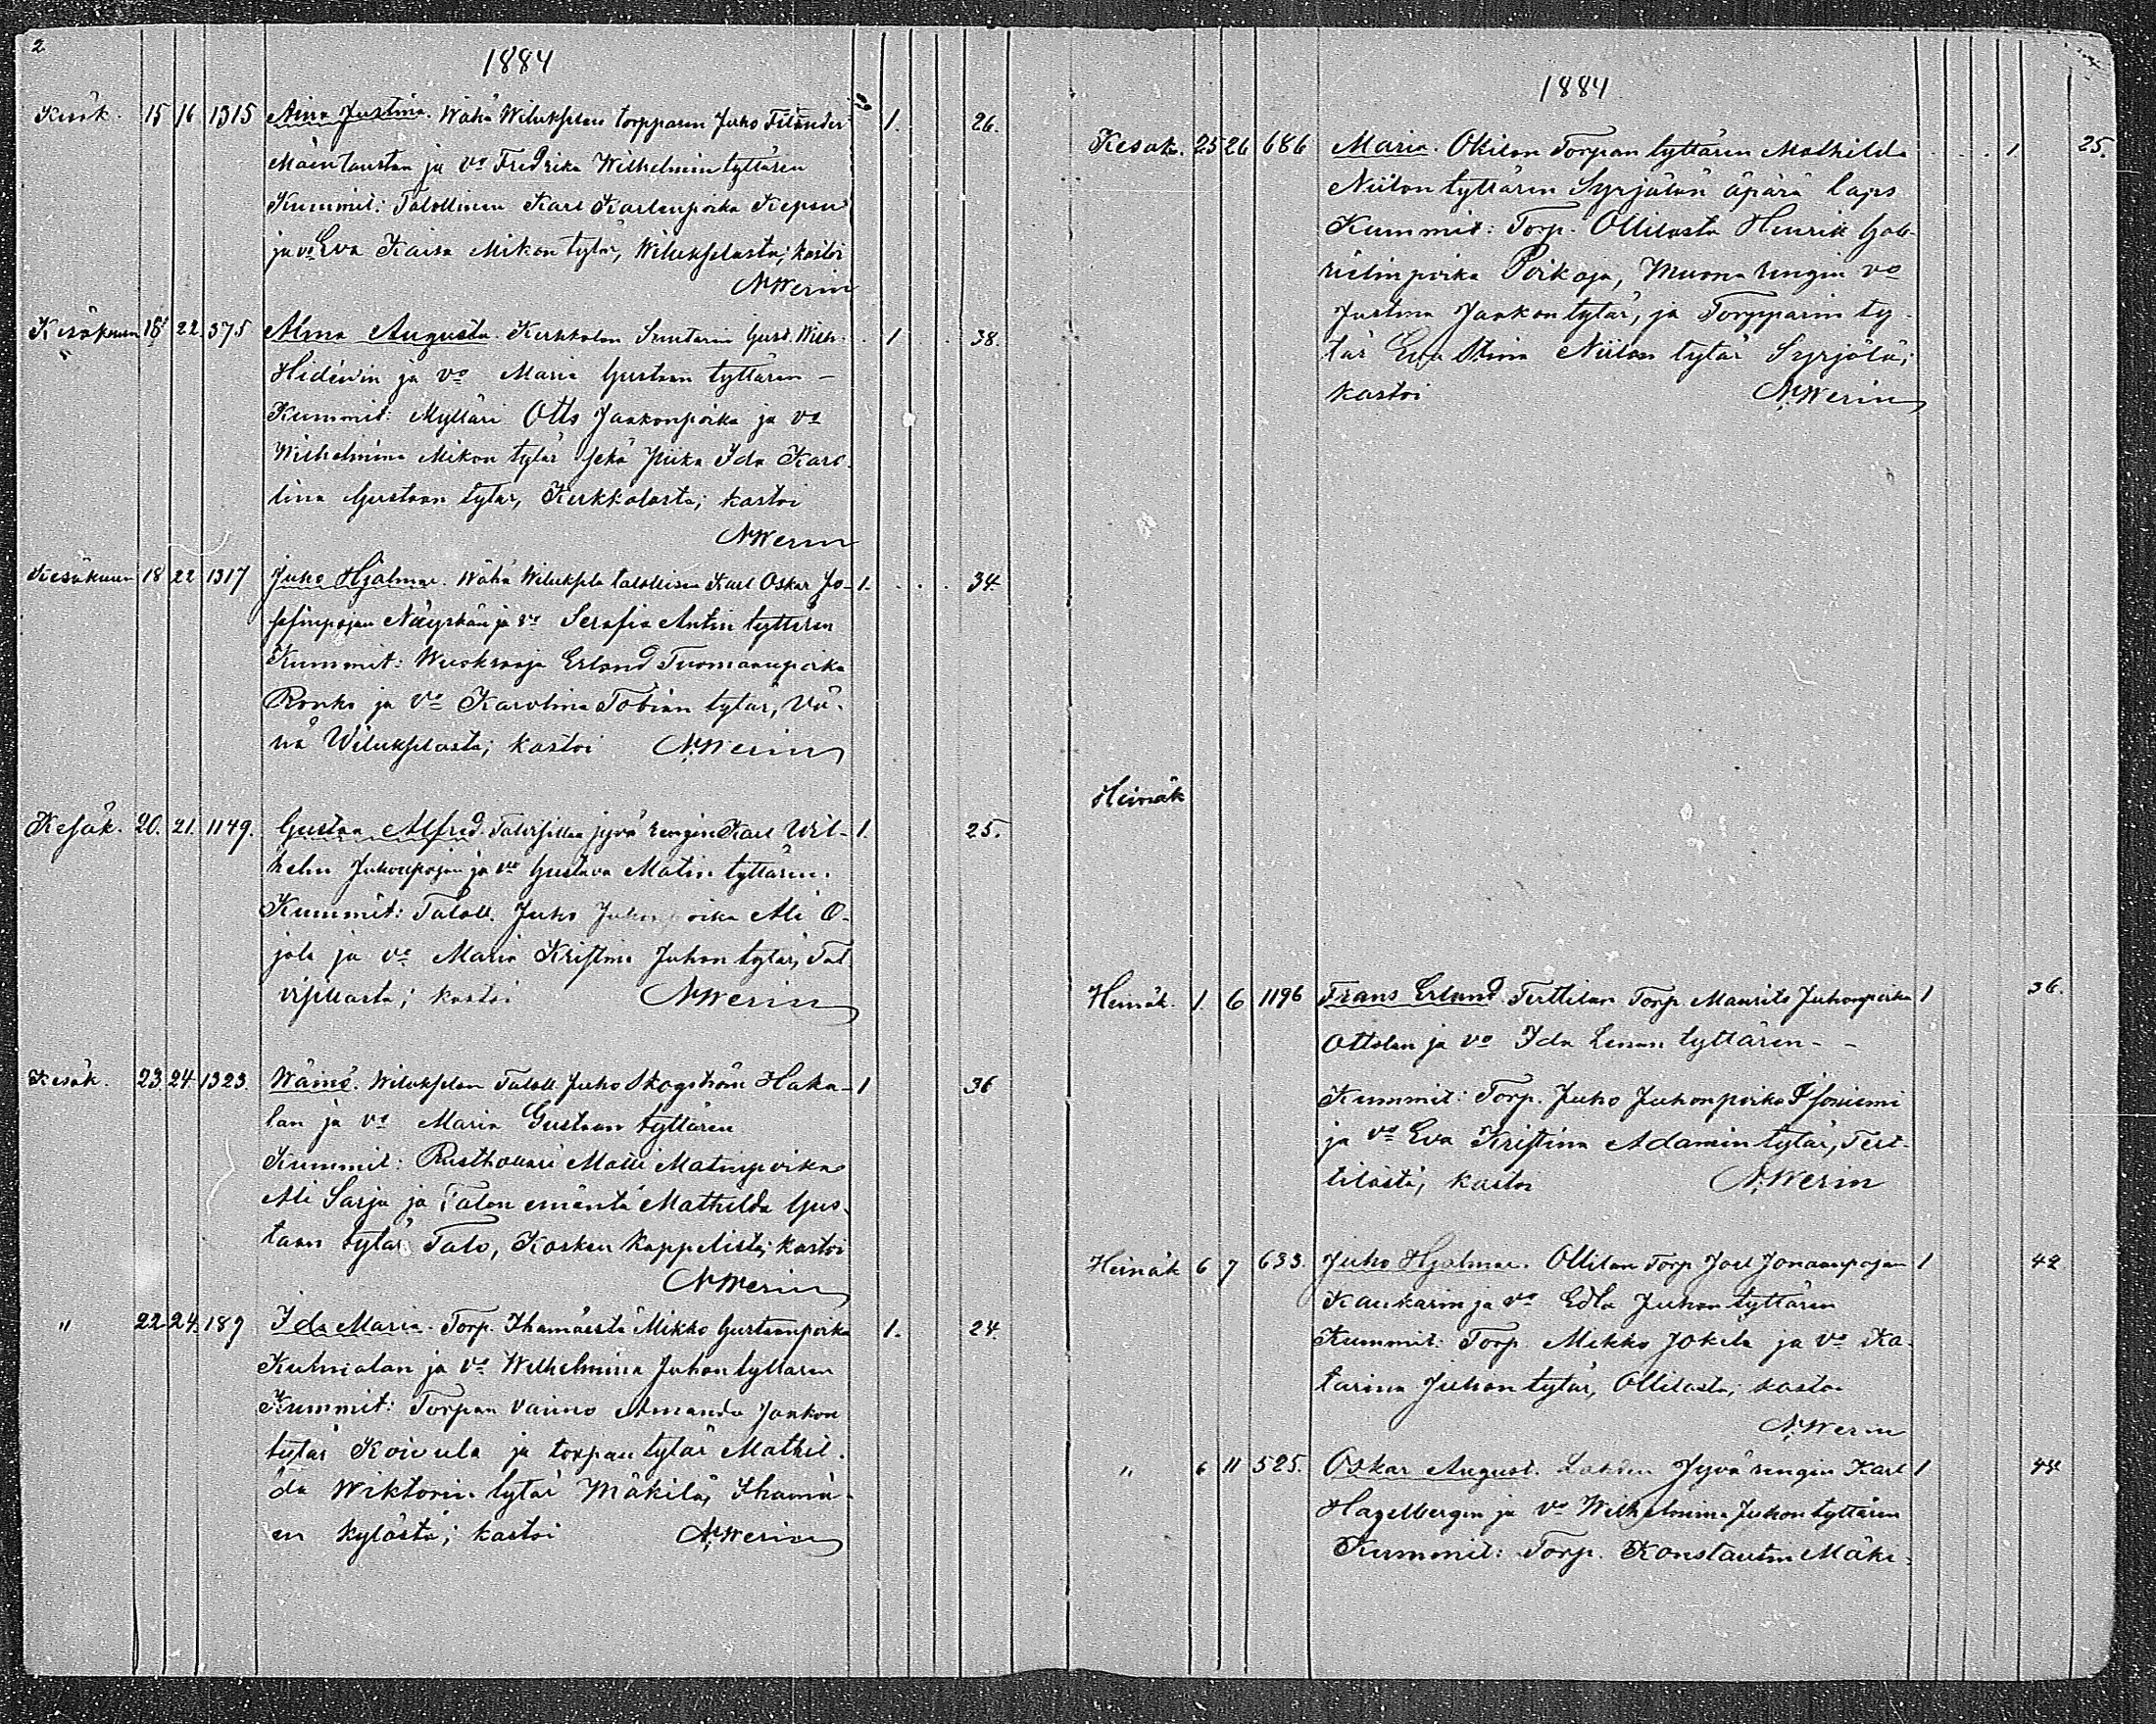 2
1884
Kesäk. 15 16 1315 Aina Justina. Wähä Wilukselan torpparin Juho Filander 1. 26.
Mäentaustan ja vo Fredrika Wilhelmin tyttären
Kummit: Talollinen Karl Karlenpoika Kepsu
ja vo Eva Kaisa Mikon tytär, Wilukselasta; kastoi
N. Werin
Kesäkuun 18 22. 375 Alma Augusta. Kerkkolan Suutarin Gust. Wilh. 1 38.
Hidénin ja vo Maria Gustaan tyttären –
Kummit: Mylläri Otto Jaakonpoika ja vo
Wilhelmina Mikon tytär sekä piika Ida Karo-
lina Gustaan tytär, Kerkkolasta; kastoi
N. Werin
Kesäkuun 18 22 1317 Juho Hjalmar. Wähä Wiluksela talollisen Karl Oskar Jo- 1. 34.
sefinpojan Näyrkän ja vo Serafia Antin tyttären
Kummit: Wuokraaja Erland Tuomaanpoika
Ronko ja vo Karolina Tobian tytär, Vä-
hä Wilukselasta; kastoi N. Werin
Kesäk. 20. 21. 1149. Gustaa Alfred. Talvisillan jyvä rengin Karl Wil- 1. 25.
helm Juhonpojan ja vo Gustava Matin tyttären.
Kummit: Taloll. Juho Juhonpoika Ali O-
jala ja vo Maria Kristina Juhon tytär, Tal-
visillasta; kastoi N. Werin
Kesäk. 23. 24. 1323. Wäinö. Wilukselan Taloll. Juho Skogström Haka- 1 36
lan ja vo Maria Gustaan tyttären
Kummit: Rusthollari Matti Matinpoika
Ali Sarja ja Talon emäntä Mathilda Gus-
taan tytär Talo, Kosken kappelista; kastoi
N. Werin
" 22. 24. 189 Ida Maria. Torp. Ihamäestä Mikko Gustaanpoika 1. 24.
Kulmalan ja vo Wilhelmina Juhon tyttären
Kummit: Torpan vaimo Amanda Jaakon
tytär Koivula ja torpan tytär Mathil-
da Wiktorin tytär Mäkilä, Ihamä-
en kylästä; kastoi N. Werin
1884
Kesäk. 25 26 686 Maria. Okilan Torpan tyttären Mathilda 1 25.
Niilon tyttären Syrjälän äpärä laps
Kummit: Torp. Ollilasta Henrik Gab-
rielinpoika Poikoja, Muona rengin vo
Justina Jaakon tytär, ja Torpparin ty-
tär Eva Stina Niilon tytär Syrjälä;
kastoi N. Werin
Heinäk
Heinäk. 1. 6 1196 Frans Erland. Terttilan Torp. Maurits Juhonpoika 1 36.
Ottolan ja vo Ida Leenan tyttären – –
Kummit: Torp. Juho Juhonpoika Isoniemi
ja vo Eva Kristina Adamin tytär, Tert-
tilästä, kastoi N. Werin
Heinäk 6 7 633. Juho Hjalmar. Ollilan Torp Joel Jonaanpojan 1 42
Kaukarin ja vo Edla Juhon tyttären
Kummit: Torp. Mikko Jokela ja vo Ka-
tarina Juhon tytär, Ollilasta; kastoi
N. Werin
" 6 11 525. Oskar August. Lahden Jyvä rengin Karl 1 44
Hagelbergin ja vo Wilhelmina Juhon tyttären
Kummit: Torp. Konstantin Mäki-